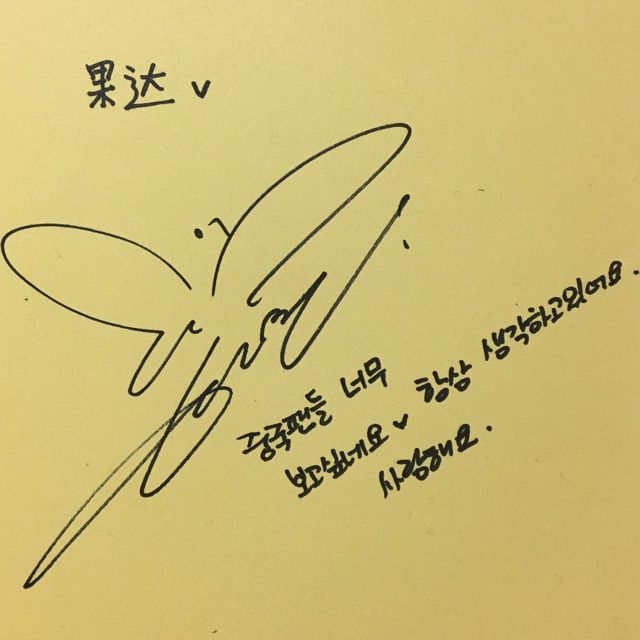 果达 v
중국팬들 너무
보고싶네요 v 항상 생각하고있어요.
사랑해요.